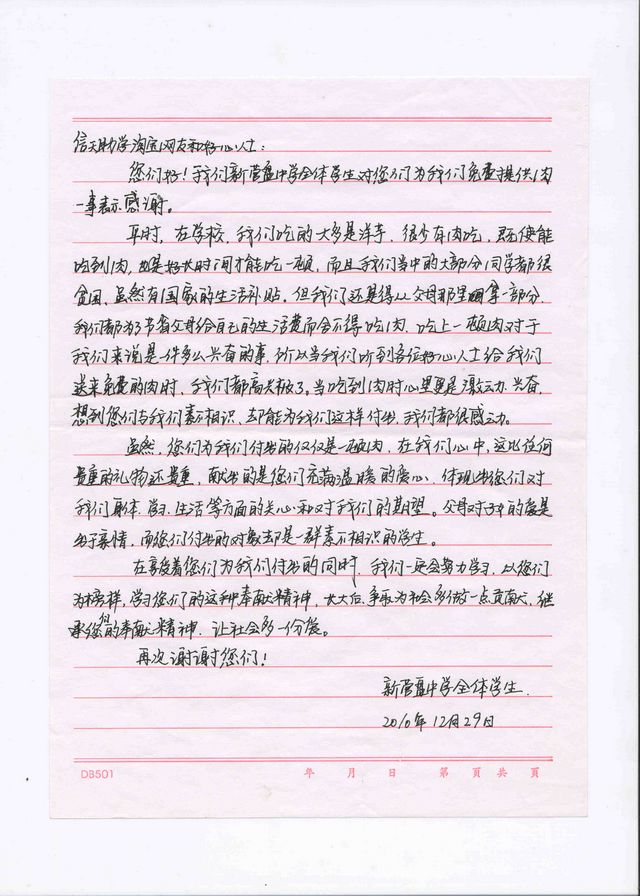 信天助学淘宝网友和好心人士：
您们好！我们新营盘中学全体学生对您们为我们免费提供肉
一事表示感谢。
平时，在学校，我们吃的大多是洋芋，很少有肉吃，既使能
吃到肉，也是好长时间才能吃一顿，而且我们当中的大部分同学都很
贫困，虽然有国家的生活补贴。但我们还是得从父母那里拿一部分，
我们都为了节省父母给自己的生活费而舍不得吃肉，吃上一顿肉对于
我们来说是一件多么兴奋的事，所以当我们听到各位好心人士给我们
送来免费的肉时，我们都高兴极了。当吃到肉时心里更是激动、兴奋，
想到您们与我们素不相识，却能为我们这样付出，我们都很感动。
虽然，您们为我们付出的仅仅是一顿肉，在我们心中，这比任何
贵重的礼物还贵重，献出的是您们充满温暖的爱心，体现出您们对
我们身体、学习、生活等方面的关心和对我们的期望。父母对子女的爱是
出于亲情，而您们付出的对象却是一群素不相识的学生。
在享受着您们为我们付出的同时，我们一定会努力学习，以您们
为榜样，学习您们的这种奉献精神，长大后争取为社会多做一点贡献，继
承您们的奉献精神，让社会多一份爱。
再次谢谢您们！
新营盘中学全体学生.
2010年12月29日
DB501 年 月 日 第 页 共 页